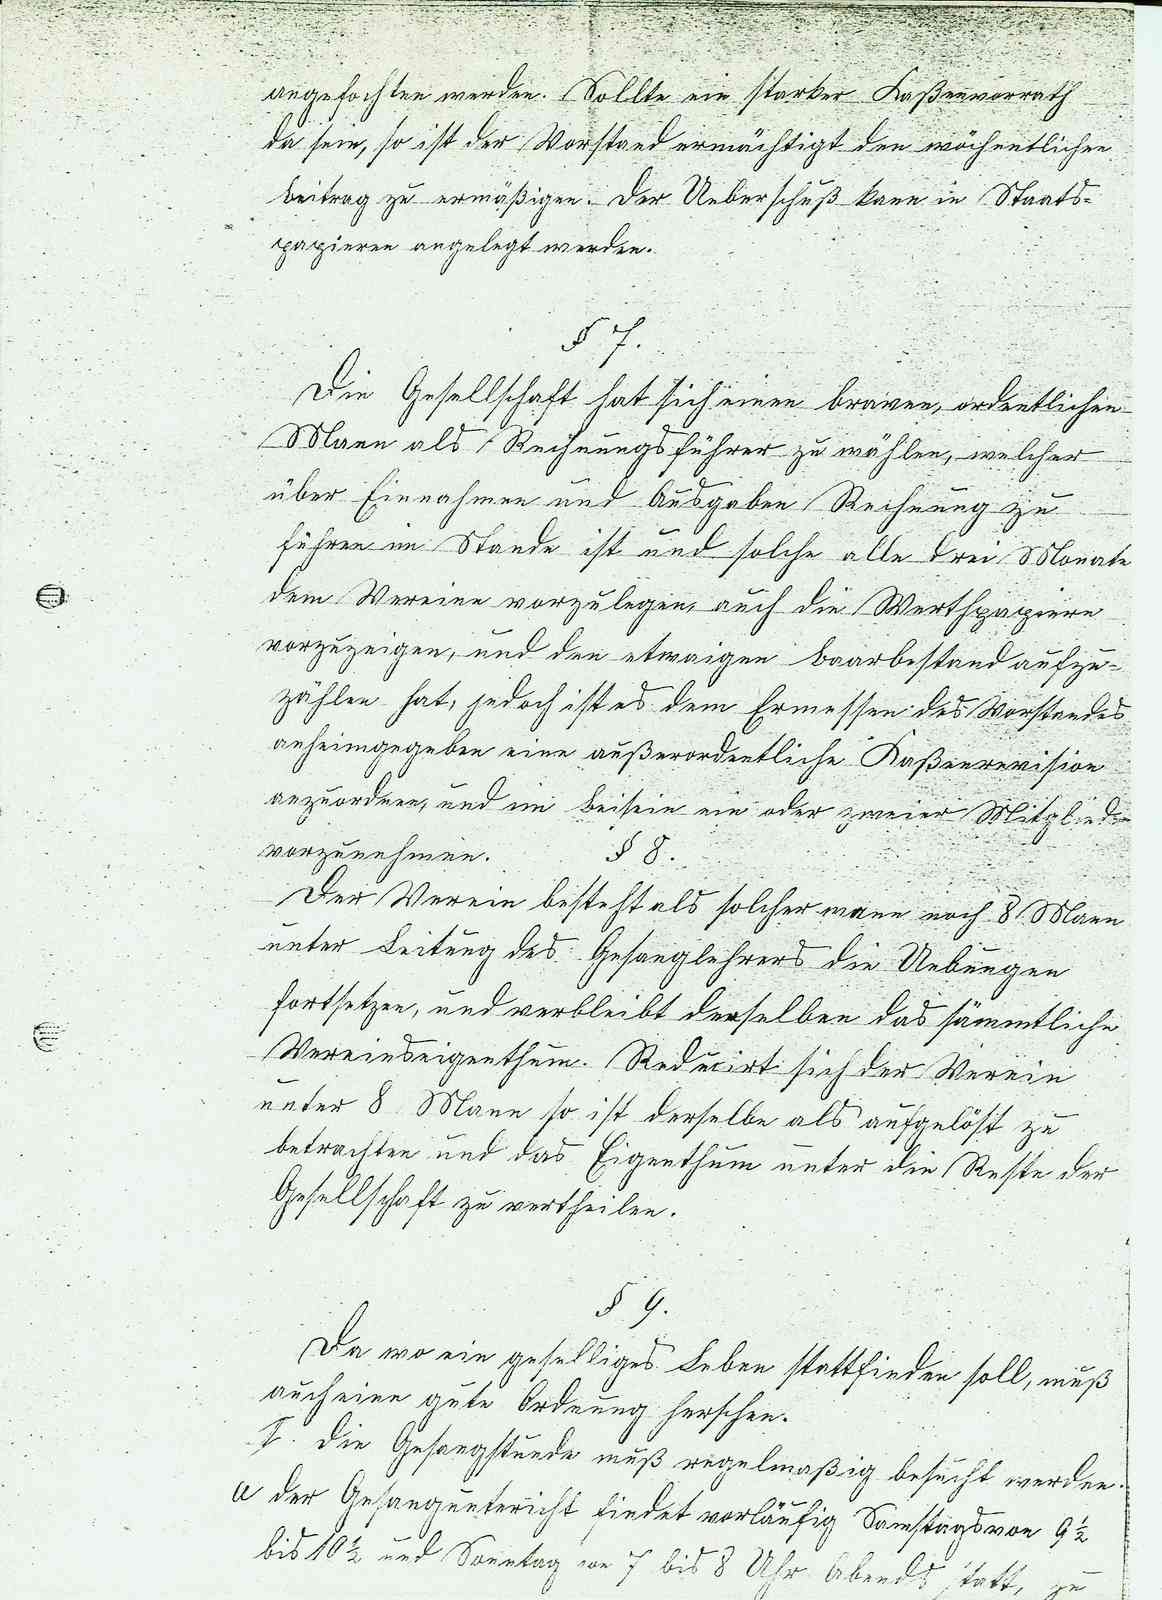 angefochten werden. Sollte ein starker Kaßenvorrath
da sein, so ist der Vorstand ermächtigt den wöchentlichen
Beitrag zu ermäßigen. Der Ueberschuß kann in Staats-
papieren angelegt werden.
§ 7.
Die Gesellschaft hat sich einen braven, ordentlichen
Mann als Rechnungsführer zu wählen, welcher
über Einnahmen und Ausgaben Rechnung zu
führen im Stande ist und solche alle drei Monate
dem Vereine vorzulegen, auch die Werthpapiere
vorzuzeigen, und den etwaigen Baarbestand aufzu-
zählen hat, jedoch ist es dem Ermessen des Vorstandes
anheimgegeben eine außerordentliche Kaßenrevision
anzuordnen, und im Beisein ein oder zweier Mitglieder
vorzunehmen. § 8.
Der Verein besteht als solcher wann noch 8 Mann
unter Leitung des Gesanglehrers die Uebungen
fortsetzen, und verbleibt derselben das sämmtliche
Vereinseigenthum. Reducirt sich der Verein
unter 8 Mann so ist derselbe als aufgelöst zu
betrachten und das Eigenthum unter die Reste der
Gesellschaft zu vertheilen.
§ 9.
Da wo ein geselliges Leben stattfinden soll, muß
auch eine gute Ordnung herschen.
I. Die Gesangstunde muß regelmaßig besucht werden.
a der Gesangunterricht findet vorläufig Samstags von 9½
bis 10½ und Sonntag von 7 bis 8 Uhr Abends statt, zu